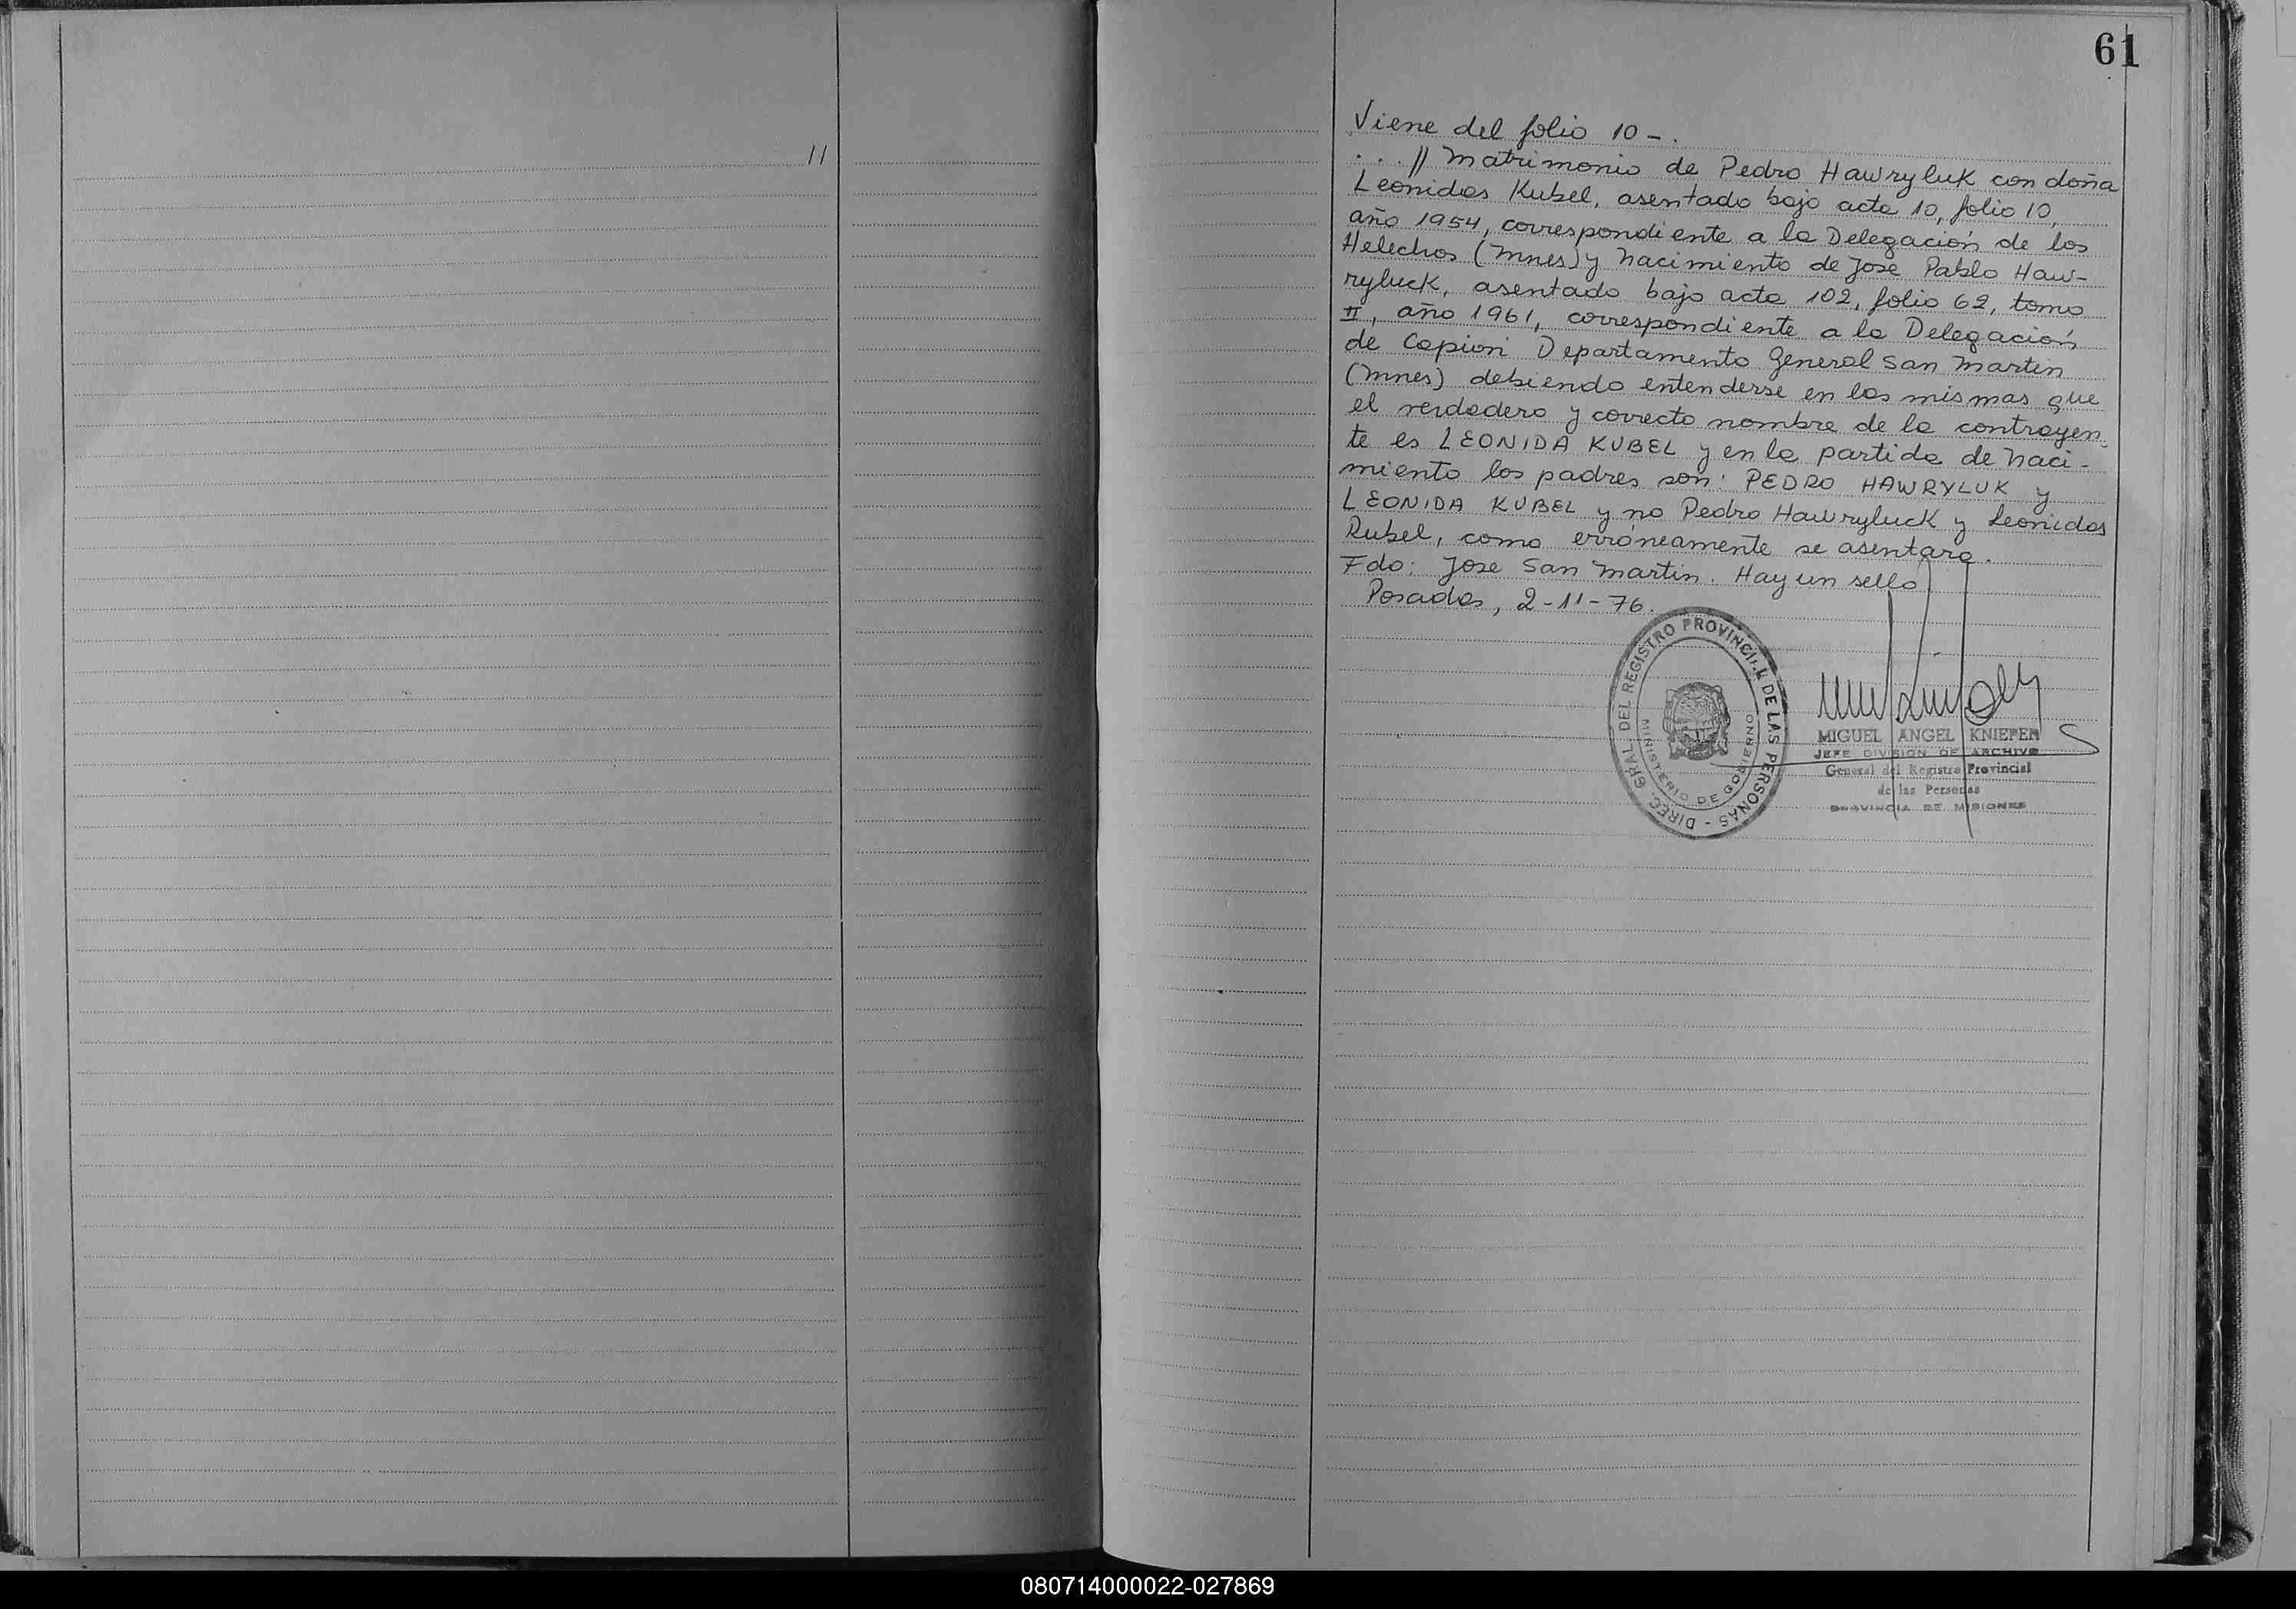 61
11
Viene del folio 10 -.
. . . // Matrimonio de Pedro Hawryluk con doña
Leonidas Kubel, asentado bajo acta 10, folio 10,
año 1954, correspondiente a la Delegación de los
Helechos (Mnes) y nacimiento de Jose Pablo Haw-
ryluck, asentado bajo acta 102, folio 62, tomo
II, año 1961, correspondiente a la Delegación
de Capiovi Departamento General San Martin
(Mnes) debiendo entenderse en las mismas que
el verdadero y correcto nombre de la contrayen-
te es LEONIDA KUBEL y en la partida de naci-
miento los padres son: PEDRO HAWRYLUK y
LEONIDA KUBEL y no Pedro Hawryluck y Leonidas
Rubel, como erróneamente se asentara.
Fdo: Jose San Martin. Hay un sello
Posadas, 2-11-76.
DIREC. GRAL. DEL REGISTRO PROVINCIAL DE LAS PERSONAS -
MINISTERIO DE GOBIERNO
MIGUEL ANGEL KNIEPER
JEFE DIVISION DE ARCHIVO
General del Registro Provincial
de las Personas
PROVINCIA DE MISIONES
080714000022-027869